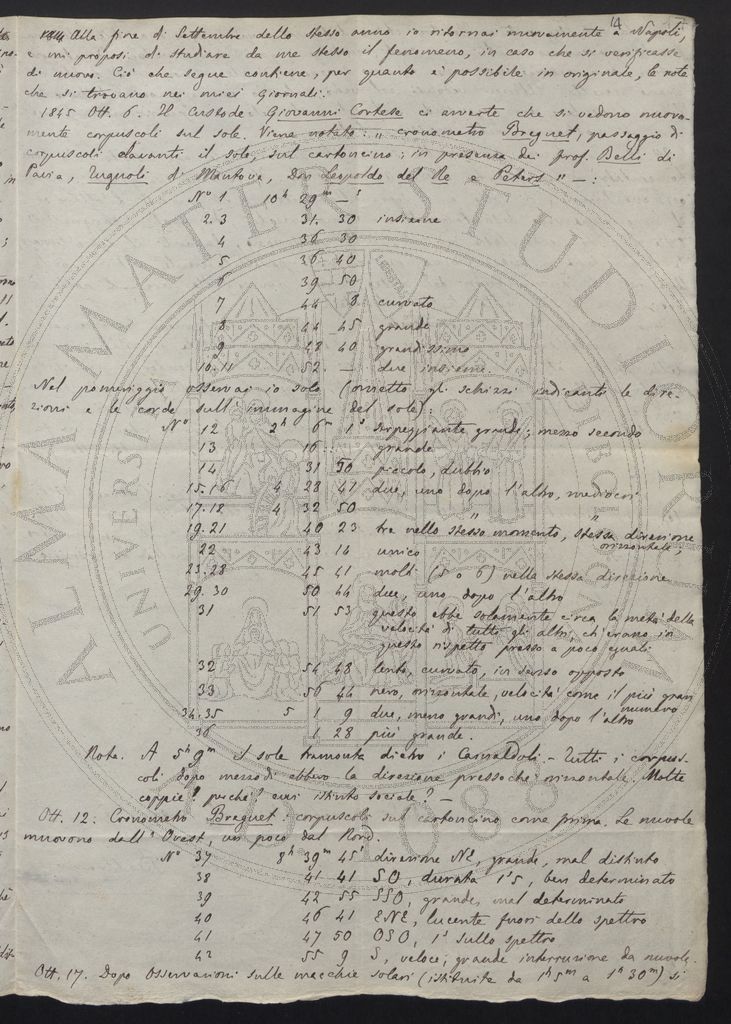 14
Alla fine di Settembre dello stesso anno io ritornai nuovamente a Napoli,
e mi proposi di studiare da me stesso il fenomeno, in caso che si verificasse
di nuovo. Ciò che segue contiene, per quanto è possibile in originale, le note
che si trovano nei miei giornali.
1845 Ott. 6. Il Custode Giovanni Cortese ci avverte che si vedono nuova-
mente corpuscoli sul sole. Viene notato: „ cronometro Breguet, passaggio di
corpuscoli davanti il sole, sul cartoncino; in presenza dei prof. Belli di
Pavia, di Mantova, Don Leopoldo del Re e Peters " — :
No 1 10h 29m — s
2. 3 31. 30 insieme
4 36 30
5 36 40
6 39 50
7 44 8 curvato
8 44 45 grande
9 48 40 grandissimo
10. 11 52. — due insieme.
Nel pomeriggio osservai io solo (ometto gli schizzi indicanti le dire-
zioni e le corde sull'immagine del sole):
No 12 2h 6m 1s serpeggiante grande; mezzo secondo
13 16 : grande
14 31 50 piccolo, dubbio
15. 16 4 28 47 due, uno dopo l'altro, mediocri
17. 18 4 32 50 " "
19. 21 40 23 tre nello stesso momento, stessa direzione
orizzontale;
22 43 14 unico
23. 28 45 41 molti (5 o 6) nella stessa direzione
29. 30 50 44 due, uno dopo l'altro
31 51 53 questo ebbe solamente circa la metà della
velocità di tutti gli altri, ch'erano in
questo rispetto presso a poco eguali
32 54 48 lento, curvato, in senso opposto
33 56 44 nero, orizzontale, velocità come il più gran
numero
34. 35 5 1 9 due, meno grandi, uno dopo l'altro
36 1 28 più grande.
Nota. A 5h 9m il sole tramonta dietro i Camaldoli. - Tutti i corpus-
coli dopo mezzodì ebbero la direzione pressochè orizzontale. Molte
coppie! perchè? evvi istinto sociale? —
Ott. 12. Cronometro Breguet: corpuscoli sul cartoncino come prima. Le nuvole
muovono dall'Ovest, un poco dal Nord.
No 37 8h 39m 45s direzione NE, grande, mal distinto
38 41 41 SO, durata 1s5, ben determinato
39 42 55 SSO, grande, mal determinato
40 46 41 ENE, lucente fuori dello spettro
41 47 50 OSO, 1s sullo spettro
42 55 9 S, veloce; grande interruzione da nuvole.
Ott. 17. Dopo osservazioni sulle macchie solari (istituite da 1h 5m a 1h 30m) si
ALMA MATER STUDIORUM